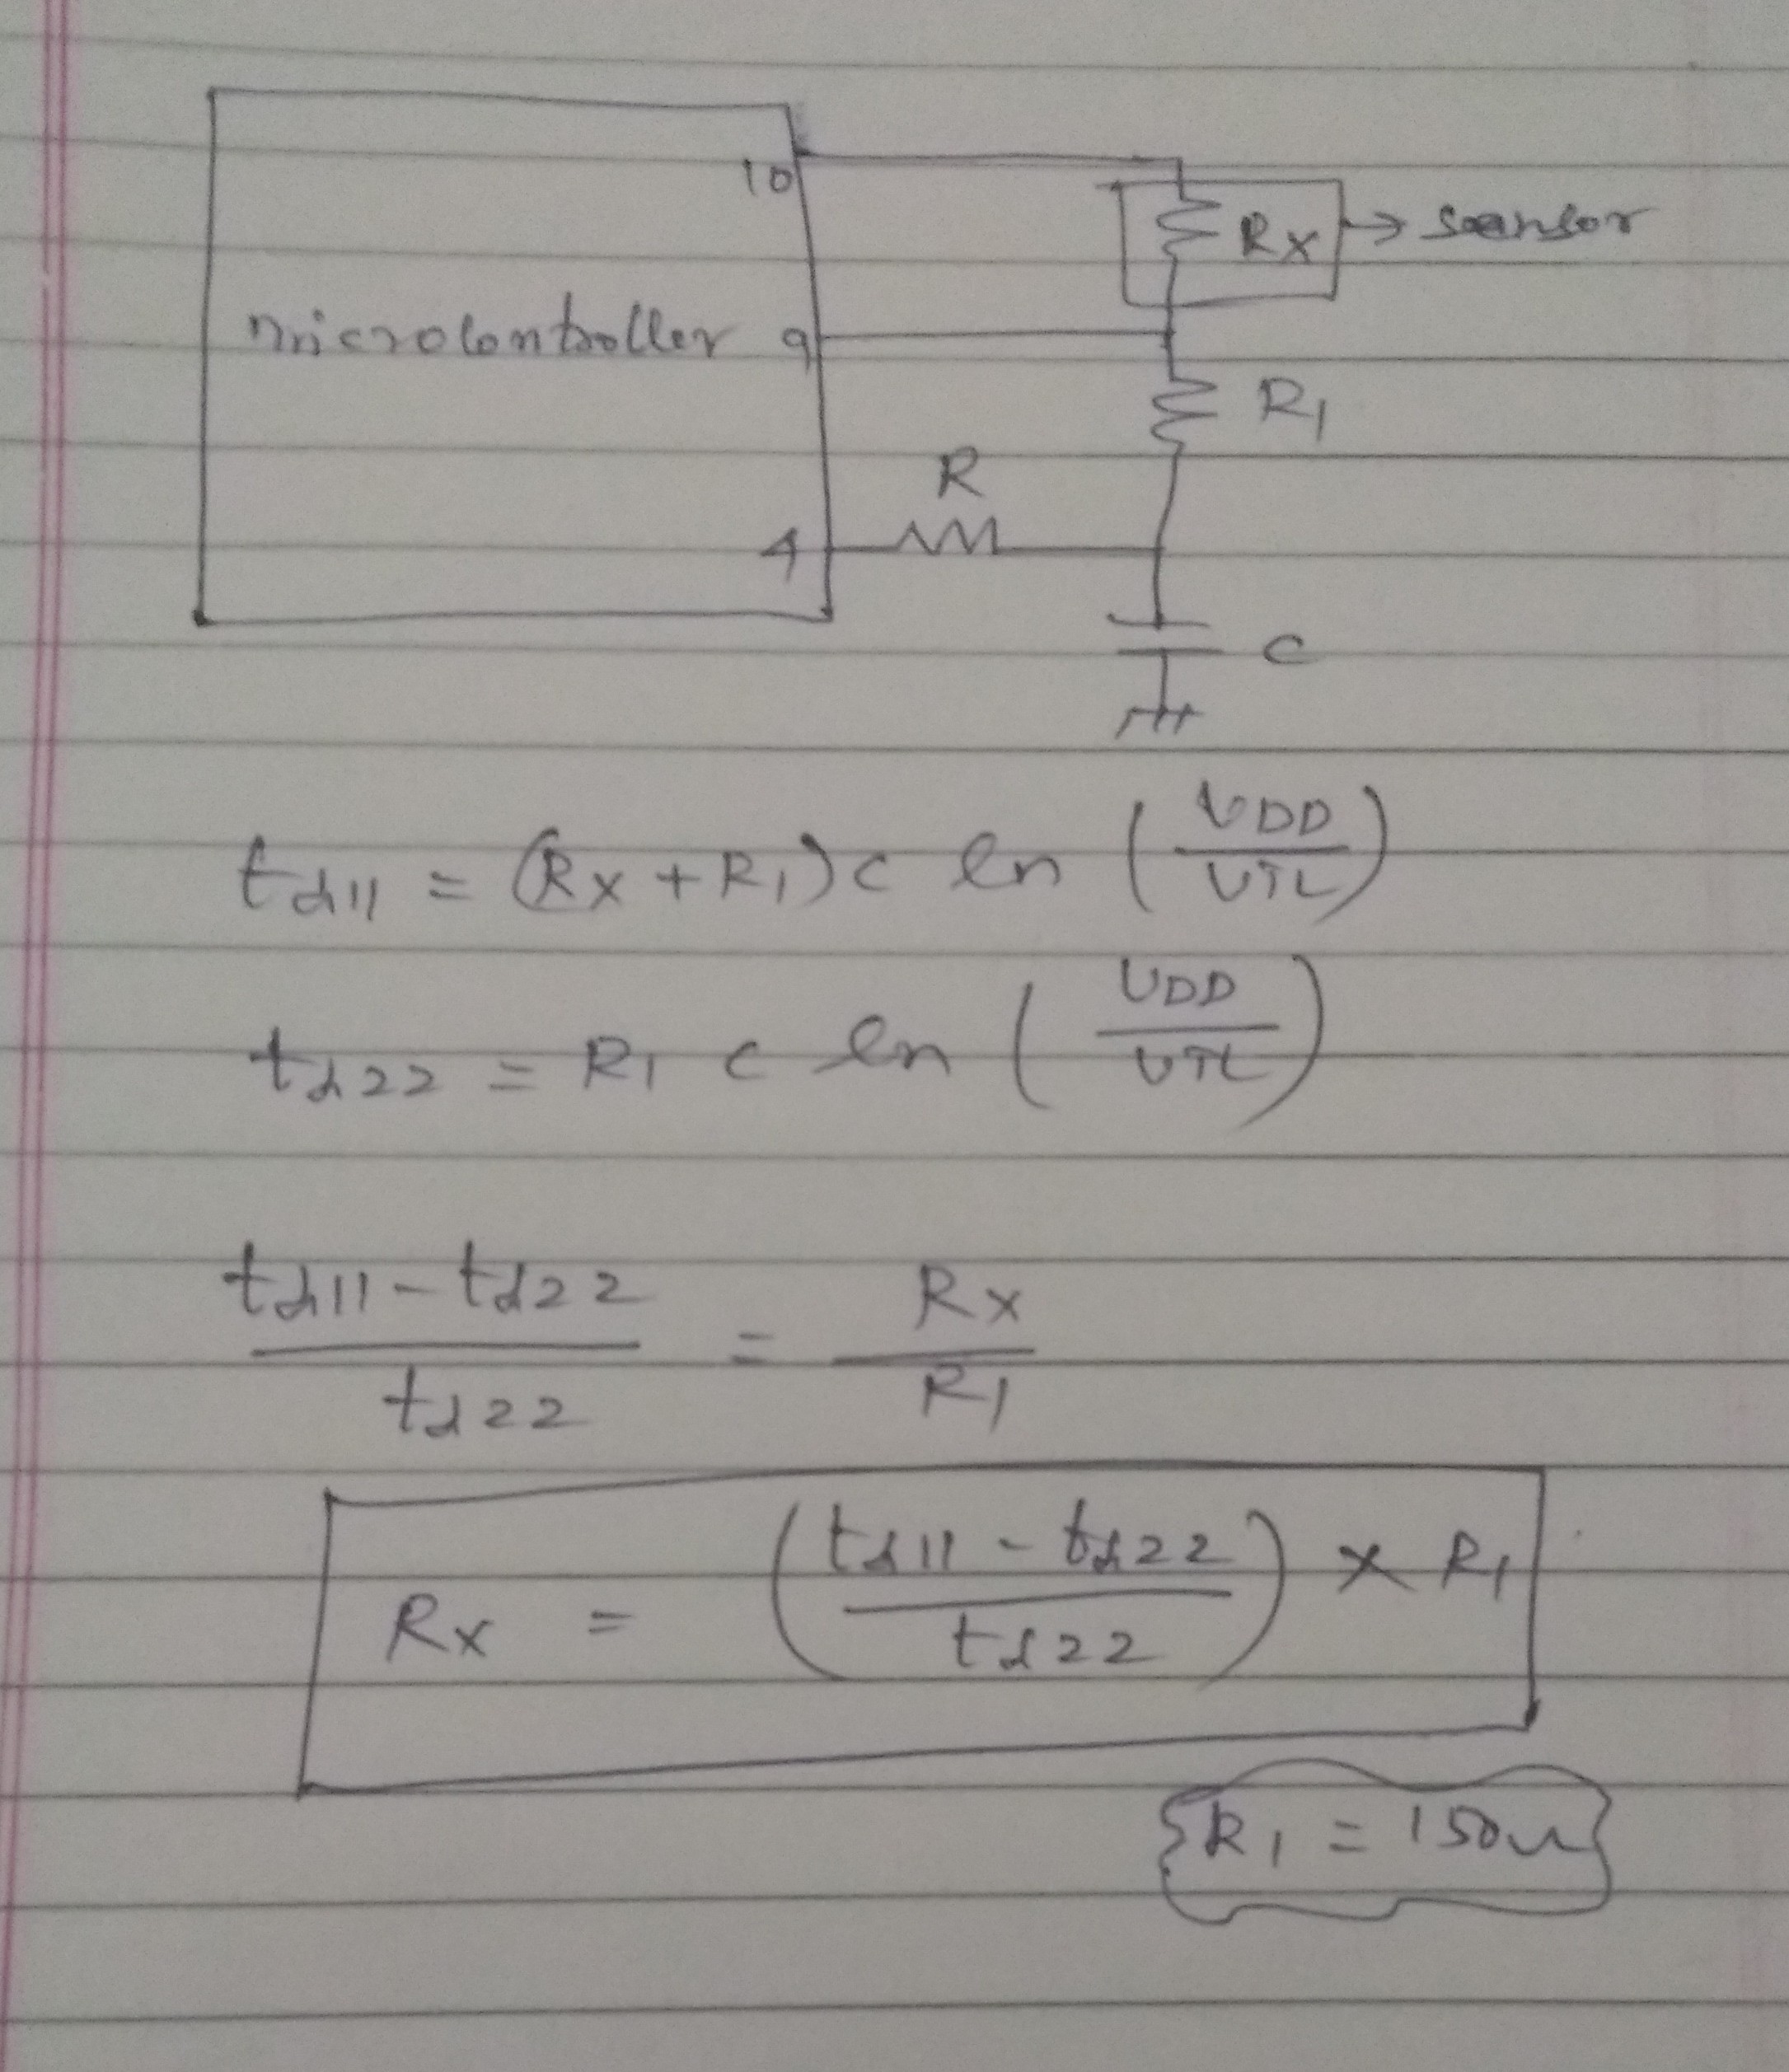 10
Rx → seensor
microcontroller 9
R1
R
4
C
td11 = (Rx + R1)c ln (VDD/VTL)
td22 = R1 c ln (VDD/VTL)
td11 - td22 / td22 = Rx / R1
Rx = (td11 - td22 / td22) × R1
{R1 = 150Ω}